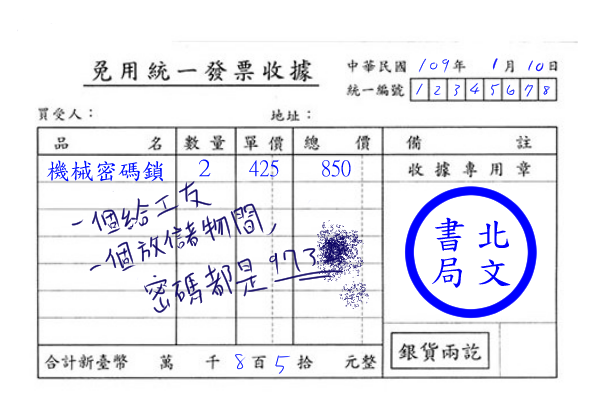 免用統一發票收據
中華民國 109年 1月 10日
統一編號 12345678
買受人：
地址：
品名 數量 單價 總價 備註
機械密碼鎖 2 425 850
收據專用章
一個給工友
一個放儲物間，
密碼都是973
北文書局
合計新臺幣 萬 千 8百 5拾 元整
銀貨兩訖